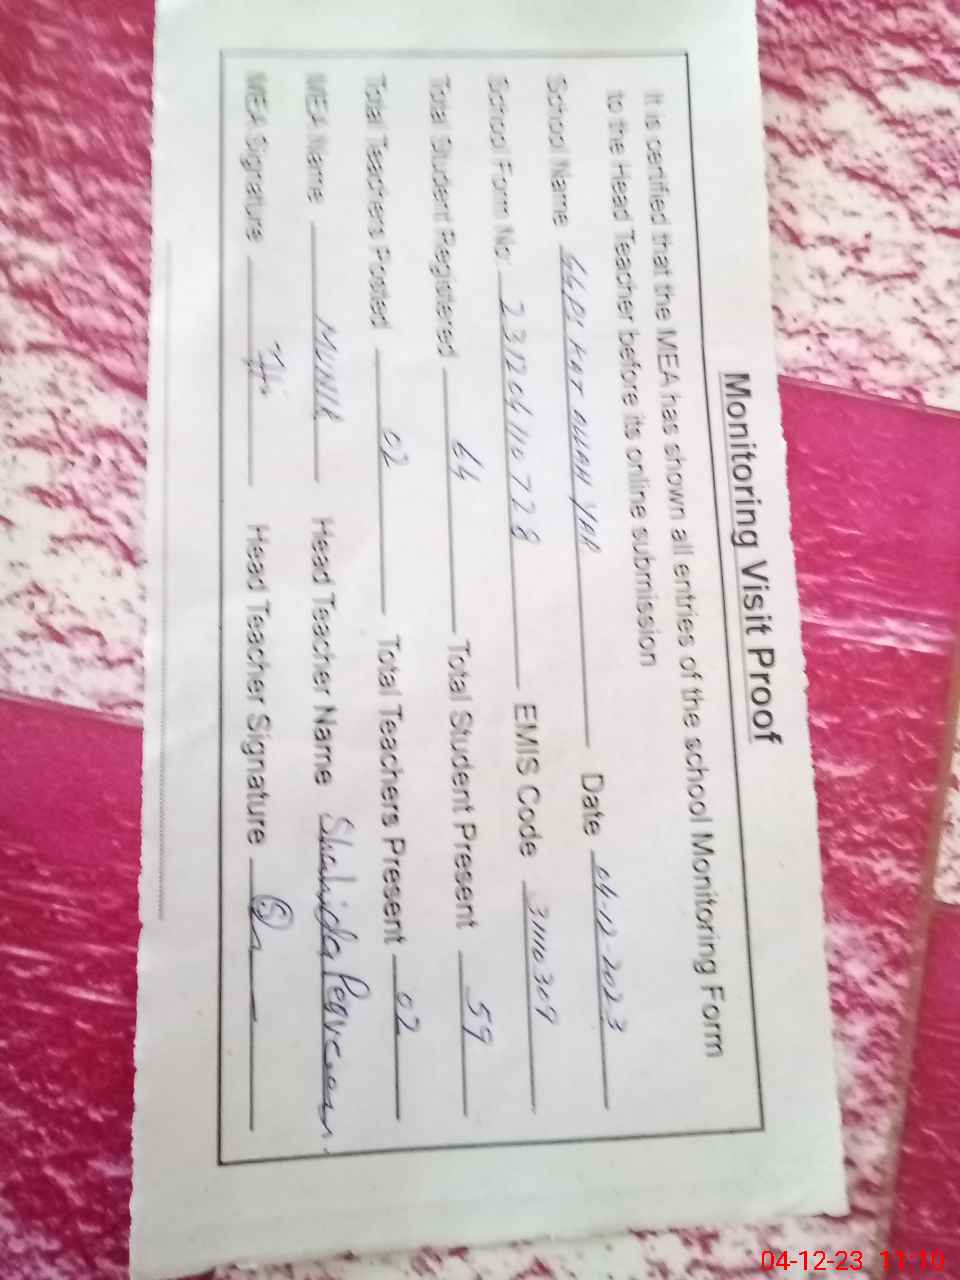 Monitoring Visit Proof
It is certified that the MEA has shown all entries of the school Monitoring Form
to the Head Teacher before its online submission
School Name GGPS KOT ALLAH YAR Date 04-12-2023
School Form No: 231204110728 EMIS Code 31110309
Total Student Registered 64 Total Student Present 59
Total Teachers Posted 02 Total Teachers Present 02
MEA Name MUNIR Head Teacher Name Shahida Perveen
MEA Signature Head Teacher Signature
04-12-23 11:10